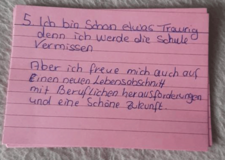 5. Ich bin Schon etwas Traurig
denn ich werde die Schule
Vermissen
Aber ich freue mich auch auf
Einen neuen Lebensabschnitt
mit Beruflichen herausforderungen
und eine Schöne Zukunft.